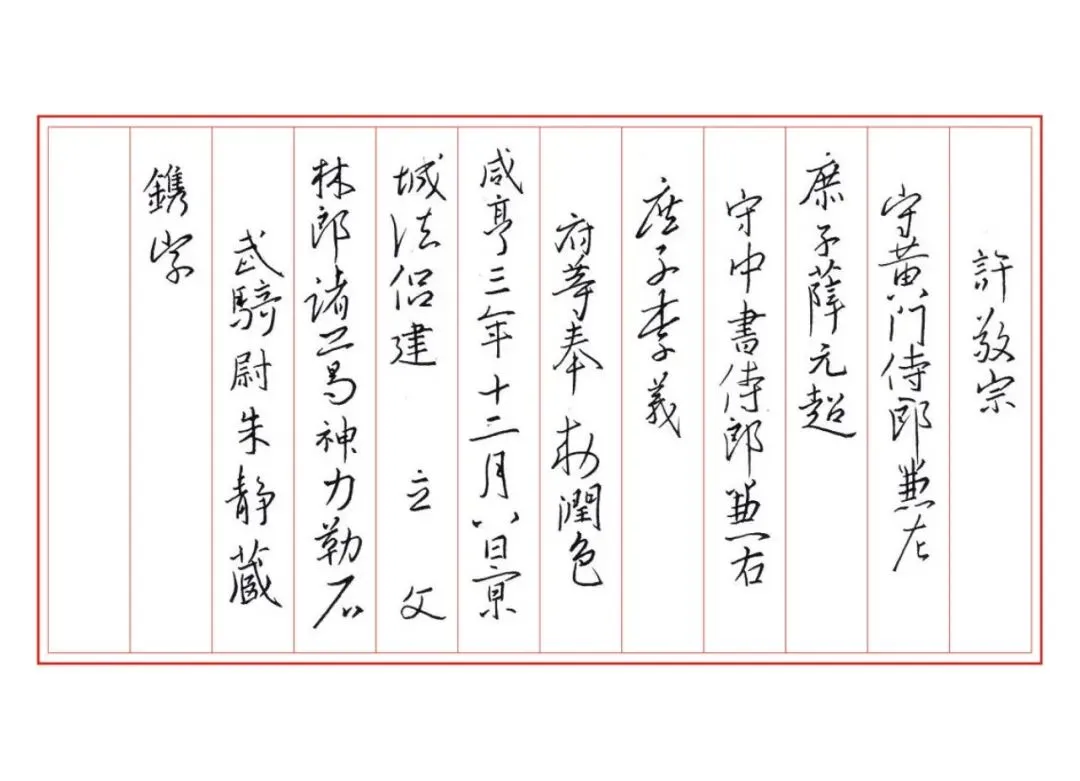 許敬宗
守黄門侍郎兼左
庶子薛元超
守中書侍郎兼右
庶子李義
府等奉敕潤色
咸亨三年十二月八日京
城法侣建 立 文
林郎諸葛神力勒石
武騎尉朱静藏
鐫字